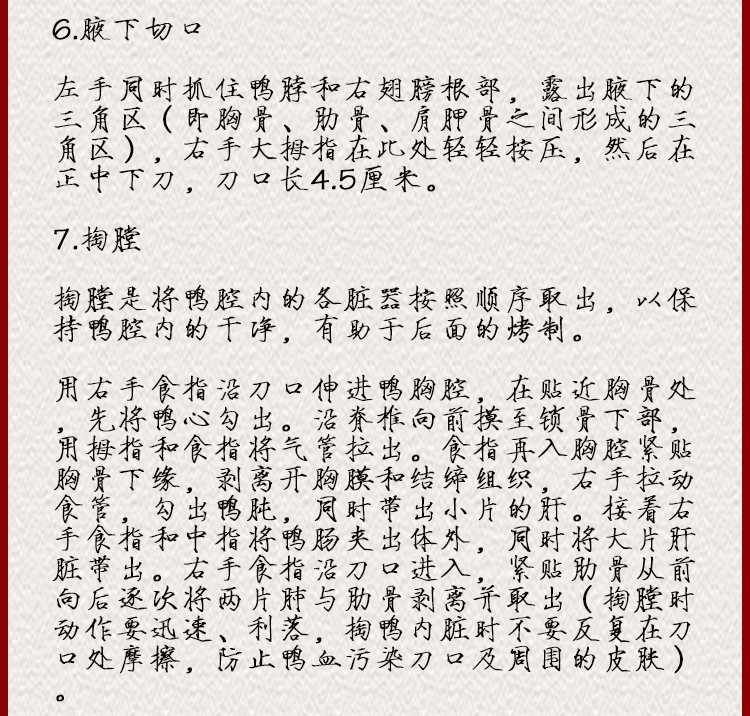 6.腋下切口
左手同时抓住鸭脖和右翅膀根部，露出腋下的
三角区（即胸骨、肋骨、肩胛骨之间形成的三
角区），右手大拇指在此处轻轻按压，然后在
正中下刀，刀口长4.5厘米。
7.掏膛
掏膛是将鸭腔内的各脏器按照顺序取出，以保
持鸭腔内的干净，有助于后面的烤制。
用右手食指沿刀口伸进鸭胸腔，在贴近胸骨处
，先将鸭心勾出。沿脊椎向前摸至锁骨下部，
用拇指和食指将气管拉出。食指再入胸腔紧贴
胸骨下缘，剥离开胸膜和结缔组织，右手拉动
食管，勾出鸭肫，同时带出小片的肝。接着右
手食指和中指将鸭肠夹出体外，同时将大片肝
脏带出。右手食指沿刀口进入，紧贴肋骨从前
向后逐次将两片肺与肋骨剥离并取出（掏膛时
动作要迅速、利落，掏鸭内脏时不要反复在刀
口处摩擦，防止鸭血污染刀口及周围的皮肤）
。